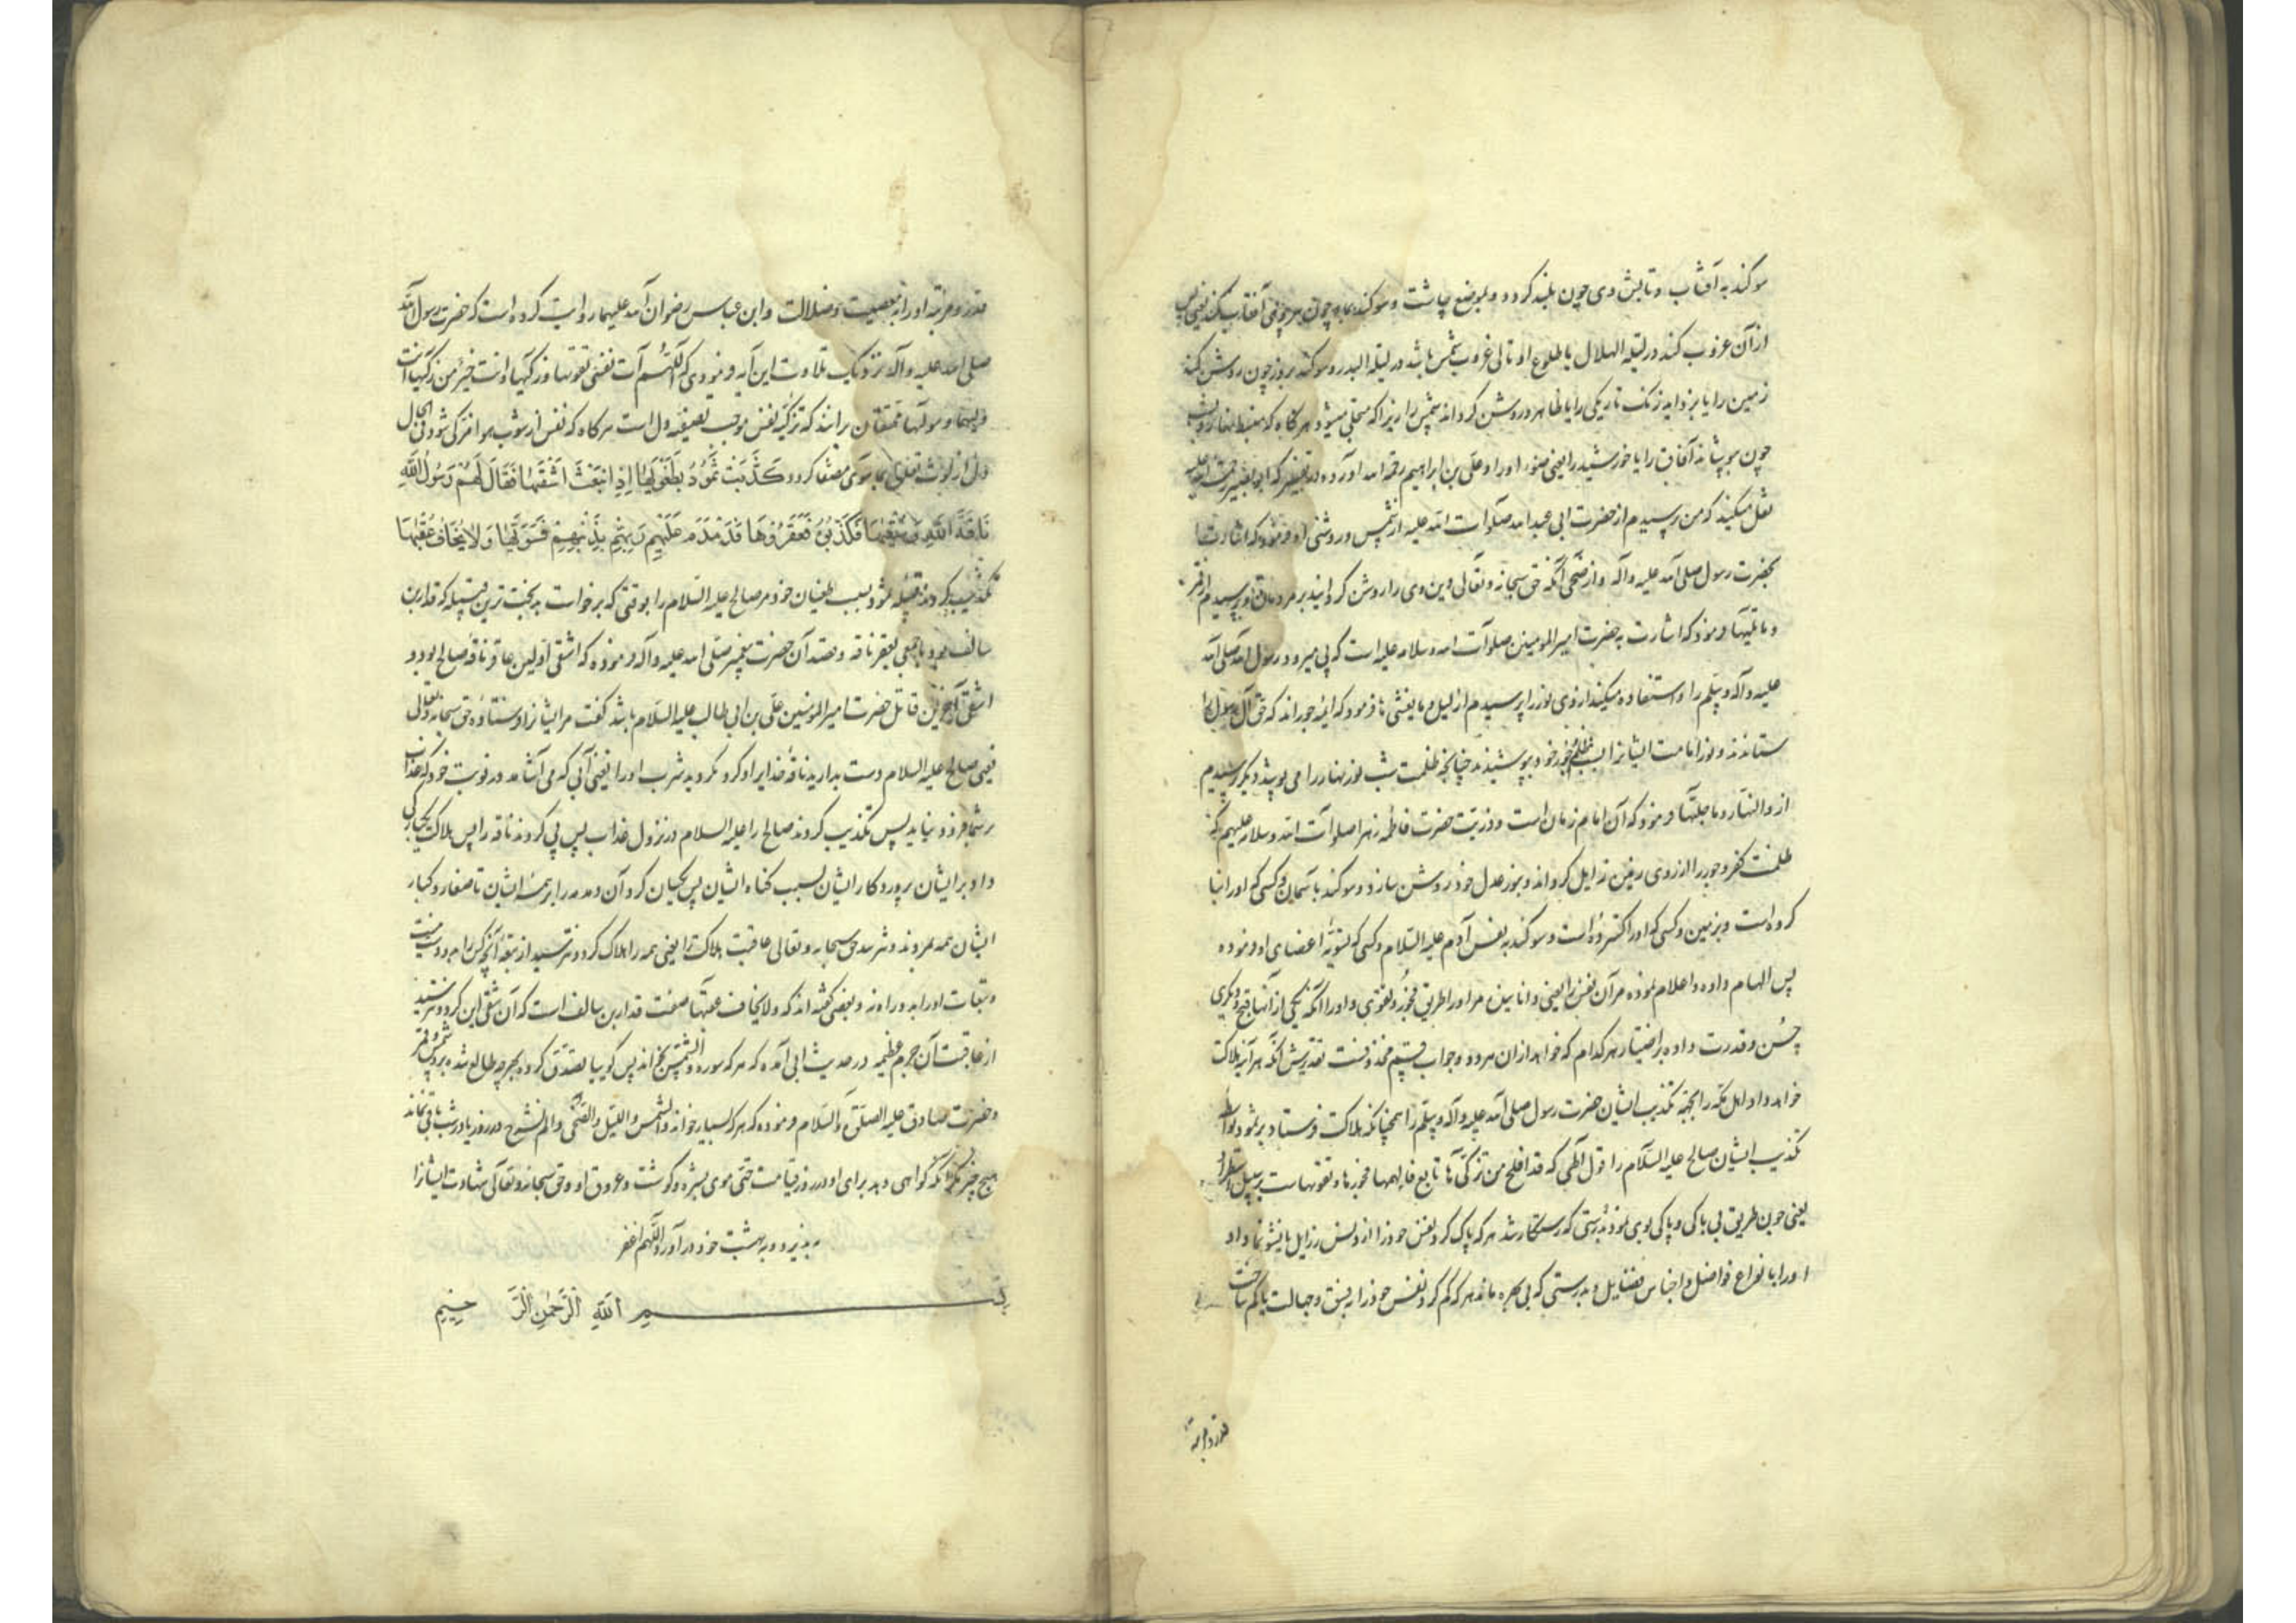 سوکند به آفتاب و تابش وی چون بلند کردد و بموضع چاشت و سوکند بماه چون پیروی آفتاب کند یعنی پس
از آن غروب کند در لیلة الهلال یا طلوع او تالی غروب شمس باشد در لیلة البدر و سوکند بروز چون روشن کند
زمین را یا بزداید زنک تاریکی را یا ظاهر و روشن کرداند شمس را زیرا که متجلی میشود هرکاه که منبسط نهار و بشب
چون بپوشاند آفاق را یا خورشید را یعنی ضوء او را و علی بن ابراهیم رحمه الله آورده در تفسیر که ابو بصیر رحمة الله علیه
نقل میکند که من پرسیدم از حضرت ابی عبد الله صلوات الله علیه از شمس و روشنی او فرمود که اشارت
بحضرت رسول صلی الله علیه و آله و از ضحی آنکه حق سبحانه و تعالی دین وی را روشن کردانید بر مردمان و پرسیدم از قمر
و ما تلیها فرمود که اشارت به حضرت امیر المومنین صلوات الله و سلامه علیه است که پی میرود رسول الله صلی الله
علیه و آله و سلم را و استفاده میکند از وی نور را پرسیدم از لیل و ما یغشی ها فرمود که ائمه جوراند که حق آل رسول را
ستاندند و نور امامت ایشانرا بسبب ظلم و جور خود بپوشیدند چنانچه ظلمت شب نور نهار را می پوشد دیکر پرسیدم
از و النهار و ما جلیها فرمود که آن امام زمان است و ذریت حضرت فاطمه زهرا صلوات الله و سلامه علیهم که
ظلمت کفر و جور را از روی زمین زایل کرداند و بنور عدل خود روشن سازد و سوکند باسمان و کسی که او را بنا
کرده است و بزمین و کسی که او را کسترده است و سوکند به نفس آدم علیه السلام و کسی که تسویه اعضای او فرموده
پس الهام داده و اعلام نموده مر آن نفس را یعنی دانا بین مر او را طریق فجور و تقوی و او را آنکه یکی از آنها قبح و دیکری
حسن و قدرت داده بر اختیار هرکدام که خواهد از ان هر دو و جواب قسم محذوفست تقدیرش آنکه هر آینه هلاکت
خواهد داد اهل مکه را بجهة تکذیب ایشان حضرت رسول صلی الله علیه و آله و سلم را همچنانکه هلاکت فرستاد بر ثمود بواسطه
تکذیب ایشان صالح علیه السلام را قول الهی که قد افلح من زکیها تابع فالهمها فجورها و تقویهاست بر سبیل استطراد
یعنی چون طریق بی باکی و پاکی بوی نمود بدرستی که رستکار شد هر که پاک کرد نفس خود را از دنس رزایل یا نشو نما داد
او را بانواع فواضل و اجناس فضایل و بدرستی که بی بهره ماند هر که کم کرد نفس خود را بفسق و جهالت یا کم ساخت
قدر و مرتبه
قدر و مرتبه او را به معصیت و ضلالت و ابن عباس رضوان الله علیهما روایت کرده است که حضرت رسول الله
صلی الله علیه و آله نزدیک تلاوت این آیه فرمودی که اللهم آت نفسی تقویها و زکیها و انت خیر من زکیها انت
ولیها و مولیها محققان برانند که تزکیه نفس موجب تصفیه دل است هرکاه که نفس از شوب هوا مزکی شود فی الحال
دل از لوث تعلق بما سوی مصفا کردد کَذَّبَتْ ثَمُودُ بِطَغْوَیهَا إِذِ انْبَعَثَ أَشْقَیهَا فَقَالَ لَهُمْ رَسُولُ اللَّهِ
نَاقَةَ اللَّهِ وَسُقْیهَا فَکَذَّبُوهُ فَعَقَرُوهَا فَدَمْدَمَ عَلَیْهِمْ رَبُّهُمْ بِذَنْبِهِمْ فَسَوَّیهَا وَلَا یَخَافُ عُقْبَیهَا
تکذیب کردند قبیله ثمود بسبب طغیان خود مر صالح علیه السلام را بوقتی که برخواست بدبخت ترین قبیله که قدار بن
سالف بود با جمعی بعقر ناقه و قصد آن حضرت پیغمبر صلی الله علیه و آله فرموده که اشقی اولین عاقر ناقه صالح بود و
اشقی آخرین قاتل حضرت امیر المومنین علی بن ابی طالب علیه السلام باشد کفت مر ایشانرا فرستاده حق سبحانه و تعالی
یعنی صالح علیه السلام دست بدارید ناقه خدایرا و کرد مکردید شرب او را یعنی آبی که می آشامد در نوبت خود که عذاب
بر شما فرود نیاید پس تکذیب کردند صالح را علیه السلام در نزول عذاب پس پی کردند ناقه را پس هلاک یکبارکی
داد بر ایشان پروردکار ایشان بسبب کناه ایشان پس یکسان کرد آن دمدمه را بر همه ایشان تا صغار و کبار
ایشان همه بمردند و نترسد حق سبحانه و تعالی عاقبت هلاکت را یعنی همه را هلاک کرد و نترسید از تبعه آنچه کرد
و تبعات او را بدو راه نه و بعضی کفته اند که و لا یخاف عقبیها صفت قدار بن سالف است که آن شقی این کرد و نترسید
از عاقبت آن جرم عظیمه در حدیث ابی آمده که هر که سوره و الشمس بخواند پس کوییا تصدق کرده بهر چه طالع شده برو شمس و قمر
و حضرت صادق علیه الصلوة و السلام فرموده که هر که بسیار خواند و الشمس و اللیل و الضحی و الم نشرح در روز یا در شب باقی نماند
هیچ چیز مکر آنکه کواهی دهد برای او در روز قیامت حتی موی بشره و کوشت و عروق او و حق سبحانه و تعالی شهادت ایشانرا
بپذیرد و به بهشت خود در آورد اللهم اغفر
بسم الله الرحمن الرحیم